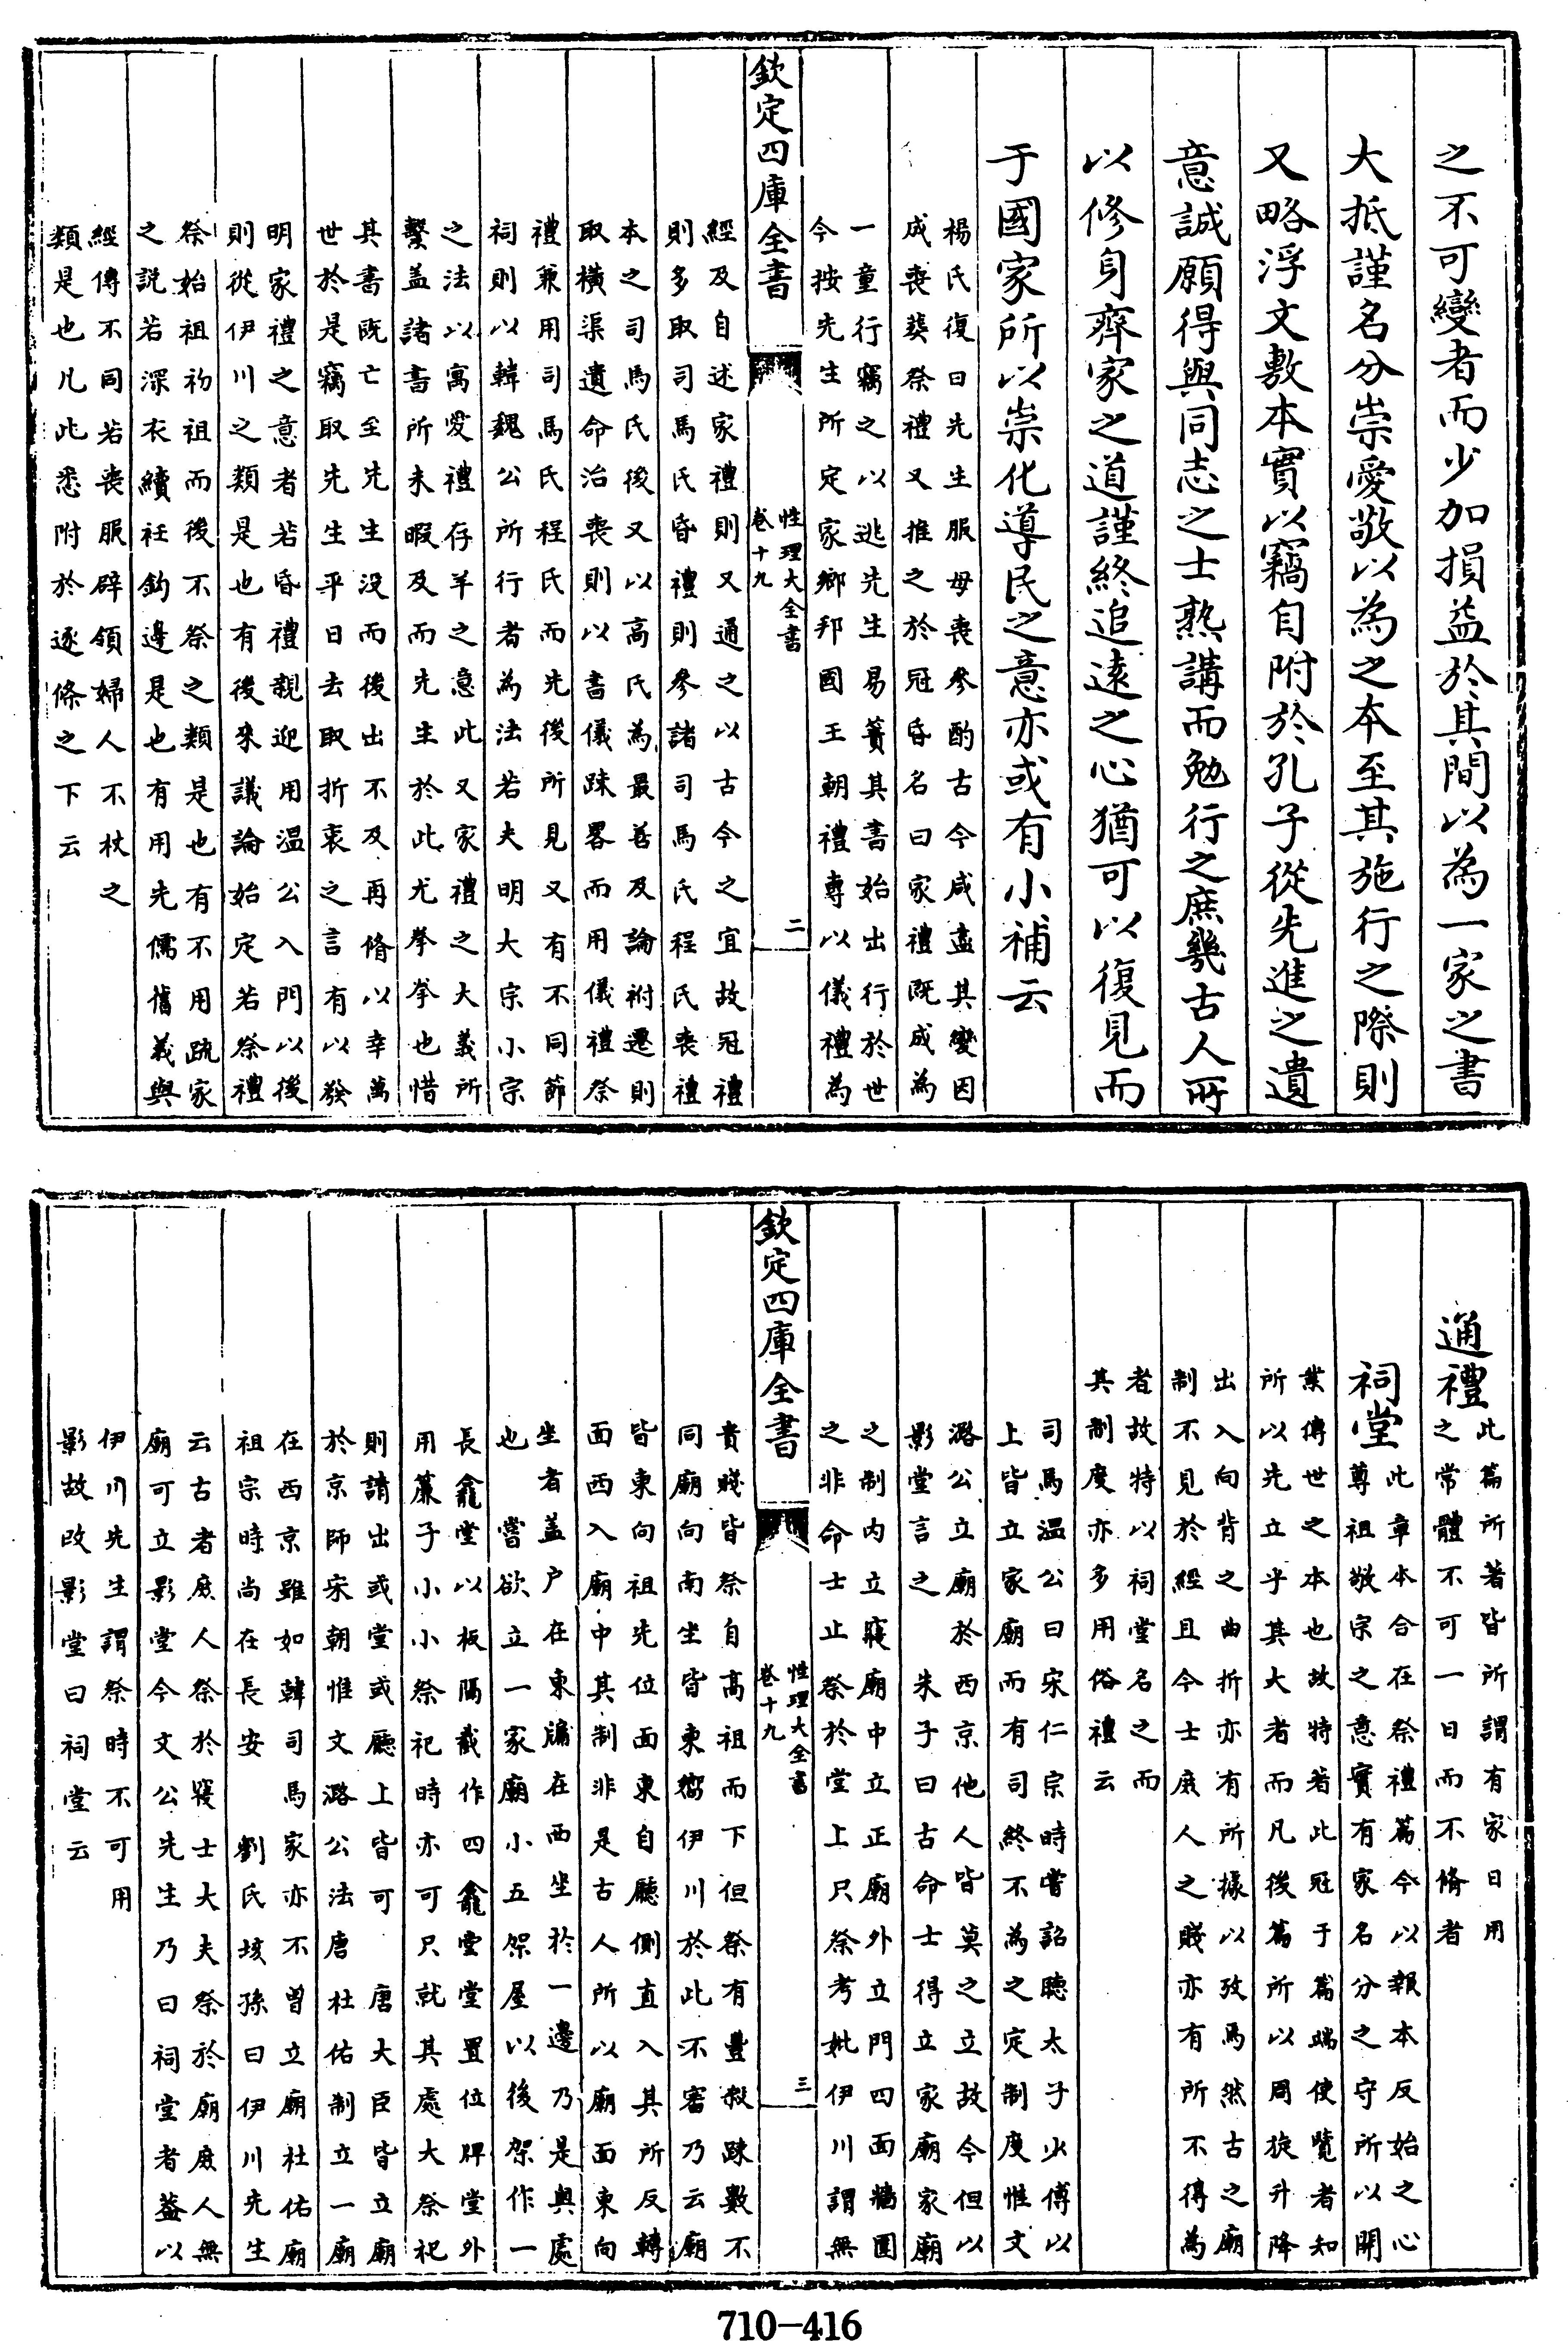 之不可變者而少加損益於其間以為一家之書
大抵謹名分崇愛敬以為之本至其施行之際則
又略浮文敷本實以竊自附於孔子從先進之遺
意誠願得與同志之士熟講而勉行之庶幾古人所
以修身齊家之道謹終追遠之心猶可以復見而
于國家所以崇化導民之意亦或有小補云
楊氏復曰先生服母喪參酌古今咸盡其變因
成喪葬祭禮又推之於冠昏名曰家禮既成為
一童行竊之以逃先生易簀其書始出行於世
今按先生所定家鄉邦國王朝禮專以儀禮為
欽定四庫全書
性理大全書
卷十九
二
經及自述家禮則又通之以古今之宜故冠禮
則多取司馬氏昏禮則參諸司馬氏程氏喪禮
本之司馬氏後又以高氏為最善及論祔遷則
取橫渠遺命治喪則以書儀疎畧而用儀禮祭
禮兼用司馬氏程氏而先後所見又有不同節
祠則以韓魏公所行者為法若夫明大宗小宗
之法以寓愛禮存羊之意此又家禮之大義所
繫盖諸書所未暇及而先生於此尤拳拳也惜
其書既亡至先生没而後出不及再脩以幸萬
世於是竊取先生平日去取折衷之言有以發
明家禮之意者若昏禮親迎用温公入門以後
則從伊川之類是也有後來議論始定若祭禮
祭始祖初祖而後不祭之類是也有不用疏家
之説若深衣續衽鈎邊是也有用先儒舊義與
經傳不同若喪服辟領婦人不杖之
類是也凡此悉附於逐條之下云
通禮此篇所著皆所謂有家日用
之常體不可一日而不脩者
祠堂此章本合在祭禮篇今以報本反始之心
尊祖敬宗之意實有家名分之守所以開
業傳世之本也故特著此冠于篇端使覽者知
所以先立乎其大者而凡後篇所以周旋升降
出入向背之曲折亦有所據以攷焉然古之廟
制不見於經且今士庶人之賤亦有所不得為
者故特以祠堂名之而
其制度亦多用俗禮云
司馬温公曰宋仁宗時嘗詔聽太子少傅以
上皆立家廟而有司終不為之定制度惟文
潞公立廟於西京他人皆莫之立故今但以
影堂言之 朱子曰古命士得立家廟家廟
之制内立寢廟中立正廟外立門四面牆圍
之非命士止祭於堂上只祭考妣伊川謂無
欽定四庫全書
性理大全書
卷十九
三
貴賤皆祭自高祖而下但祭有豐殺疎數不
同廟向南坐皆東嚮伊川於此不審乃云廟
皆東向祖先位面東自廳側直入其所反轉
面西入廟中其制非是古人所以廟面東向
坐者盖户在東牖在西坐於一邊乃是奥處
也 嘗欲立一家廟小五架屋以後架作一
長龕堂以板隔截作四龕堂堂置位牌堂外
用簾子小小祭祀時亦可只就其處大祭祀
則請出或堂或廳上皆可 唐大臣皆立廟
於京師宋朝惟文潞公法唐杜佑制立一廟
在西京雖如韓司馬家亦不曽立廟杜佑廟
祖宗時尚在長安 劉氏垓孫曰伊川先生
云古者庶人祭於寢士大夫祭於廟庶人無
廟可立影堂今文公先生乃曰祠堂者葢以
伊川先生謂祭時不可用
影故改影堂曰祠堂云
710-416